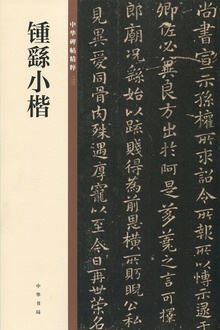 中华碑帖精粹
锺繇小楷
中华书局
尚書宣示孫權所求詔令所報所以博示
逮于卿佐必冀良方出於阿是芻蕘之言可擇
郎廟況繇始以疏賤得為前恩橫所眄睨公私
見異愛同骨肉殊遇厚寵以至今日再世榮名